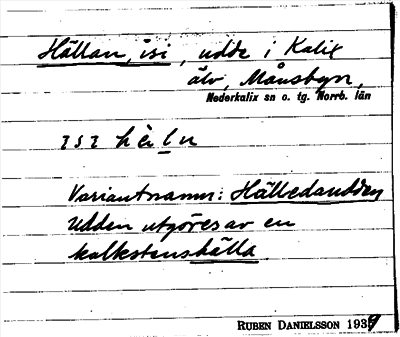 Hällan, isi, udde i Kalix
älv, Månsbyn,
Nederkalix sn o. tg. Norrb. län
ɪsɪ hèln
Variantnamn: Hälledaudden
Udden utgöres av en
kalkstenshälla
RUBEN DANIELSSON 1939